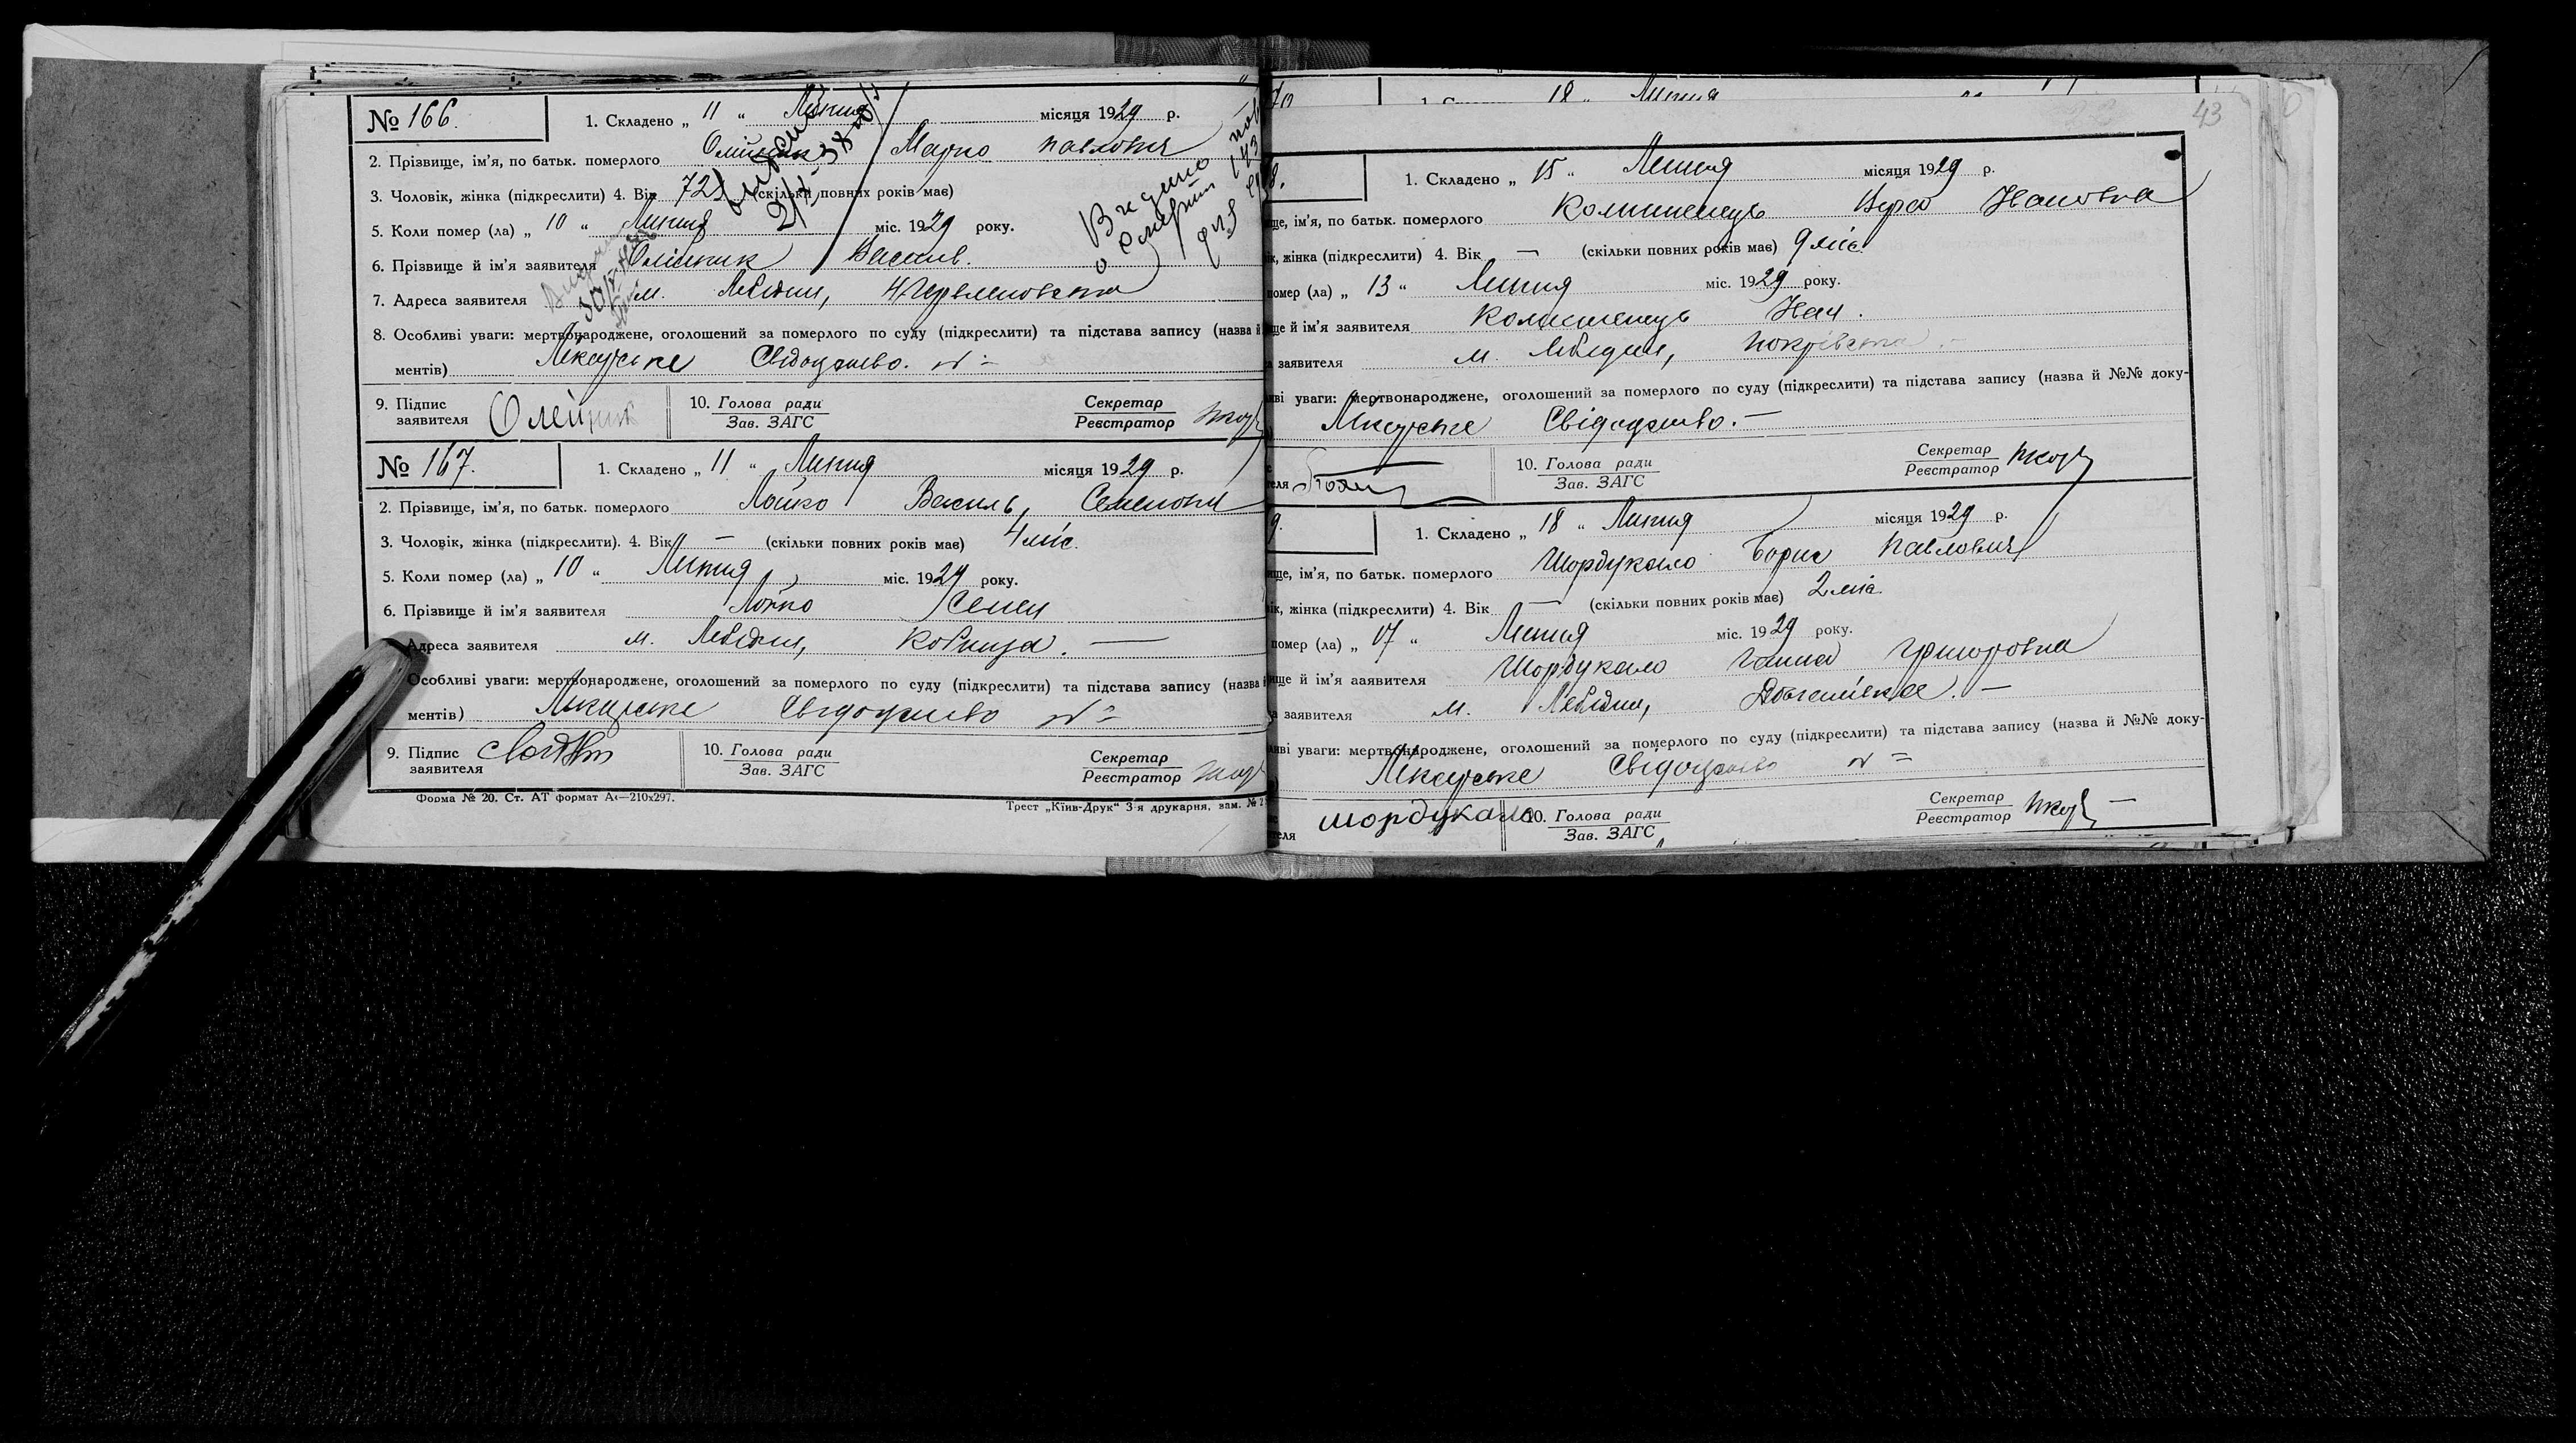 № 166.
1. Складено „ 11 “ Липня місяця 1929 р.
2. Прізвище, ім'я, по батьк. померлого Олійник Марко Павлович
3. Чоловік, жінка (підкреслити) 4. Вік 72 (скільки повних років має)
5. Коли помер (ла) „ 10 “ Липня міс. 1929 року.
6. Прізвище й ім'я заявителя Олійник Василь.
7. Адреса заявителя м. Лебедин,
8. Особливі уваги: мертвонароджене, оголошений за померлого по суду (підкреслити) та підстава запису (назва й
ментів) Лікарське Свідоцтво. №
9. Підпис заявителя Олейник
10. Голова ради
Зав. ЗАГС
Секретар
Реєстратор
Видано
о смерти
№ 167.
1. Складено „ 11 “ Липня місяця 1929 р.
2. Прізвище, ім'я, по батьк. померлого Лойко Василь Семенович
3. Чоловік, жінка (підкреслити). 4. Вік — (скільки повних років має) 4 міс.
5. Коли помер (ла) „ 10 “ Липня міс. 1929 року.
6. Прізвище й ім'я заявителя Лойко Семен
Адреса заявителя м. Лебедин, Кобища. —
Особливі уваги: мертвонароджене, оголошений за померлого по суду (підкреслити) та підстава запису (назва й
ментів) Лікарське Свідоцтво №
9. Підпис заявителя
10. Голова ради
Зав. ЗАГС
Секретар
Реєстратор
Форма № 20. Ст. АТ формат А₄—210х297.
Трест „Київ-Друк“ 3-я друкарня, зам. № 2
70
18 „ Липня
43
8.
1. Складено „ 15 “ Липня місяця 1929 р.
ще, ім'я, по батьк. померлого Коломієць Віра Ивановна
ік, жінка (підкреслити) 4. Вік — (скільки повних років має) 9 міс.
помер (ла) „ 13 “ Липня міс. 1929 року.
ще й ім'я заявителя Коломієць Иван.
а заявителя м. Лебедин, Покрівська
иві уваги: мертвонароджене, оголошений за померлого по суду (підкреслити) та підстава запису (назва й №№ доку-
Лікарське Свідоцтво. —
теля
10. Голова ради
Зав. ЗАГС
Секретар
Реєстратор
9.
1. Складено „ 18 “ Липня місяця 1929 р.
ище, ім'я, по батьк. померлого Шордукало Борис Павлович
ік, жінка (підкреслити) 4. Вік — (скільки повних років має) 2 міс.
помер (ла) „ 17 “ Липня міс. 1929 року.
ище й ім'я аявителя Шордукало Ганна Григоровна
а заявителя м. Лебедин,
ливі уваги: мертвонароджене, оголошений за померлого по суду (підкреслити) та підстава запису (назва й №№ доку-
Лікарське Свідоцтво №
теля шордукало
10. Голова ради
Зав. ЗАГС
Секретар
Реєстратор